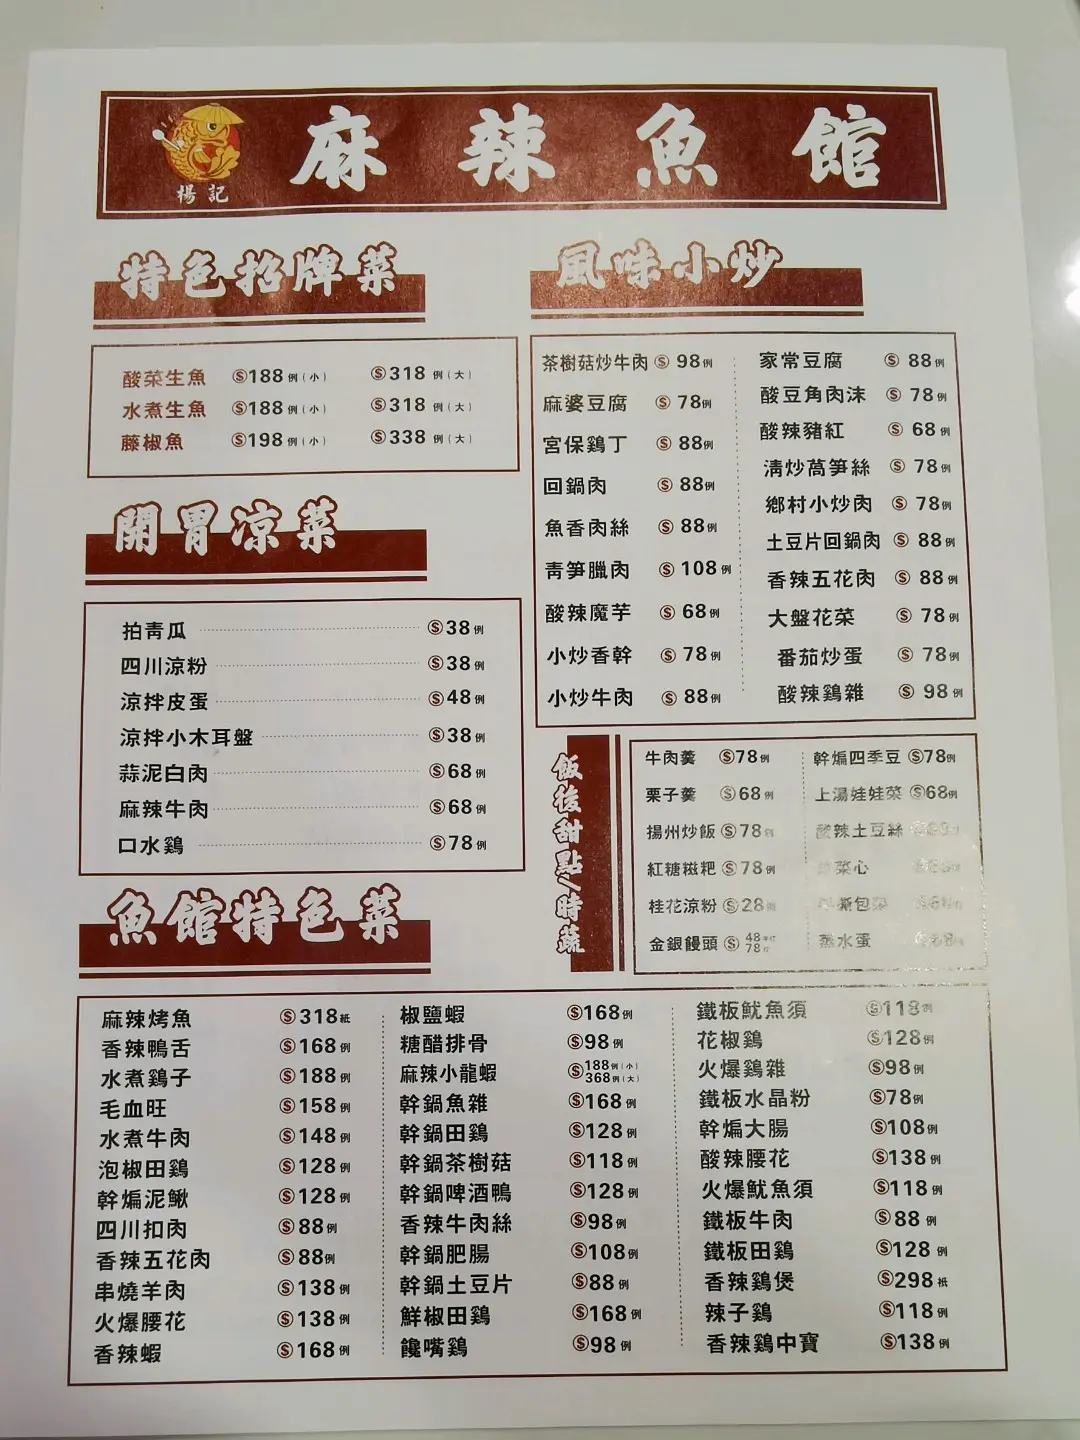 楊記
麻辣魚館
特色招牌菜
酸菜生魚 $188例(小) $318例(大)
水煮生魚 $188例(小) $318例(大)
藤椒魚 $198例(小) $338例(大)
開胃涼菜
拍靑瓜 $38例
四川涼粉 $38例
涼拌皮蛋 $48例
涼拌小木耳盤 $38例
蒜泥白肉 $68例
麻辣牛肉 $68例
口水鷄 $78例
風味小炒
茶樹菇炒牛肉 $98例
麻婆豆腐 $78例
宮保鷄丁 $88例
回鍋肉 $88例
魚香肉絲 $88例
靑笋臘肉 $108例
酸辣魔芋 $68例
小炒香幹 $78例
小炒牛肉 $88例
家常豆腐 $88例
酸豆角肉沫 $78例
酸辣豬紅 $68例
淸炒萵笋絲 $78例
鄉村小炒肉 $78例
土豆片回鍋肉 $88例
香辣五花肉 $88例
大盤花菜 $78例
番茄炒蛋 $78例
酸辣鷄雜 $98例
飯後甜點/時蔬
牛肉羹 $78例
栗子羹 $68例
揚州炒飯 $78例
紅糖糍粑 $78例
桂花涼粉 $28例
金銀饅頭 $48 78
幹煸四季豆 $78例
上湯娃娃菜 $68例
酸辣土豆絲
菜心
包菜
蒸水蛋
魚館特色菜
麻辣烤魚 $318紙
香辣鴨舌 $168例
水煮鷄子 $188例
毛血旺 $158例
水煮牛肉 $148例
泡椒田鷄 $128例
幹煸泥鰍 $128例
四川扣肉 $88例
香辣五花肉 $88例
串燒羊肉 $138例
火爆腰花 $138例
香辣蝦 $168例
椒鹽蝦 $168例
糖醋排骨 $98例
麻辣小龍蝦 $188例(小) 368例(大)
幹鍋魚雜 $168例
幹鍋田鷄 $128例
幹鍋茶樹菇 $118例
幹鍋啤酒鴨 $128例
香辣牛肉絲 $98例
幹鍋肥腸 $108例
幹鍋土豆片 $88例
鮮椒田鷄 $168例
饞嘴鷄 $98例
鐵板魷魚須 $118例
花椒鷄 $128例
火爆鷄雜 $98例
鐵板水晶粉 $78例
幹煸大腸 $108例
酸辣腰花 $138例
火爆魷魚須 $118例
鐵板牛肉 $88例
鐵板田鷄 $128例
香辣鷄煲 $298紙
辣子鷄 $118例
香辣鷄中寶 $138例